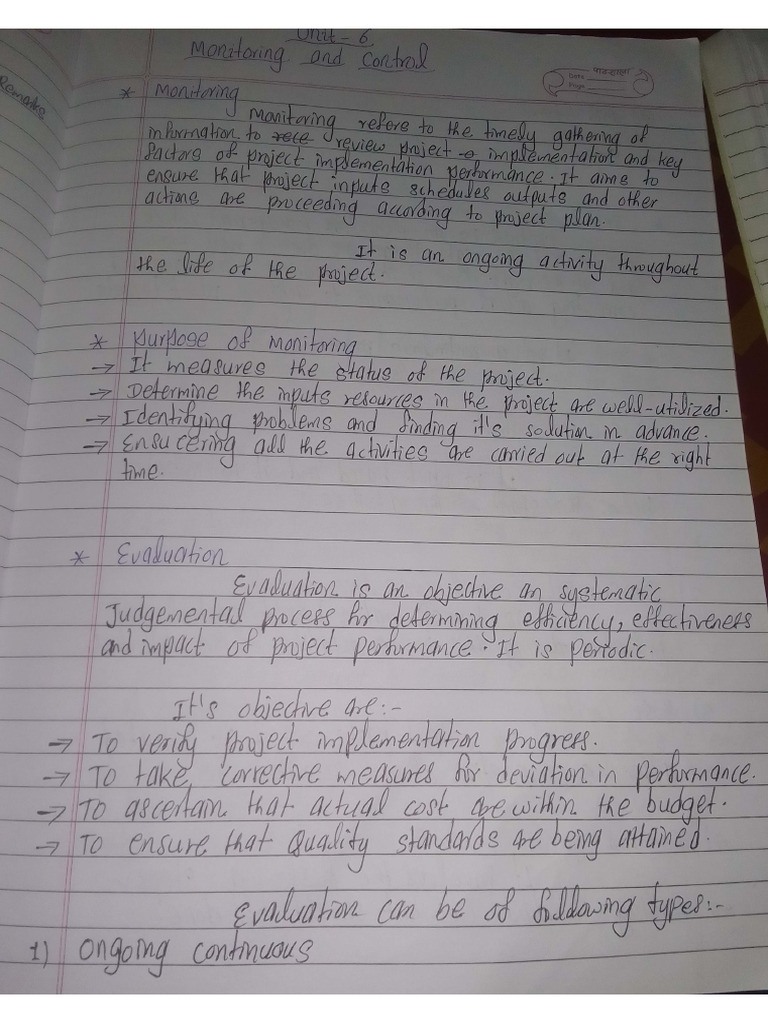 Unit - 6
Monitoring and Control
पाठशाला
Date
Page
Remarks
* Monitoring
Monitoring refers to the timely gathering of
information to rece review project implementation and key
factors of project implementation performance. It aims to
ensure that project inputs schedules outputs and other
actions are proceeding according to project plan.
It is an ongoing activity throughout
the life of the project.
* Purpose of Monitoring
→ It measures the status of the project.
→ Determine the inputs resources in the project are well-utilized.
→ Identifying problems and finding it's solution in advance.
→ Ensucering all the activities are carried out at the right
time.
* Evaluation
Evaluation is an objective an systematic
Judgemental process for determining efficiency, effectiveness
and impact of project performance. It is periodic.
It's objective are:-
→ To verify project implementation progress.
→ To take corrective measures for deviation in performance.
→ To ascertain that actual cost are within the budget.
→ To ensure that Quality standards are being attained.
Evaluation can be of following types:-
1) Ongoing continuous